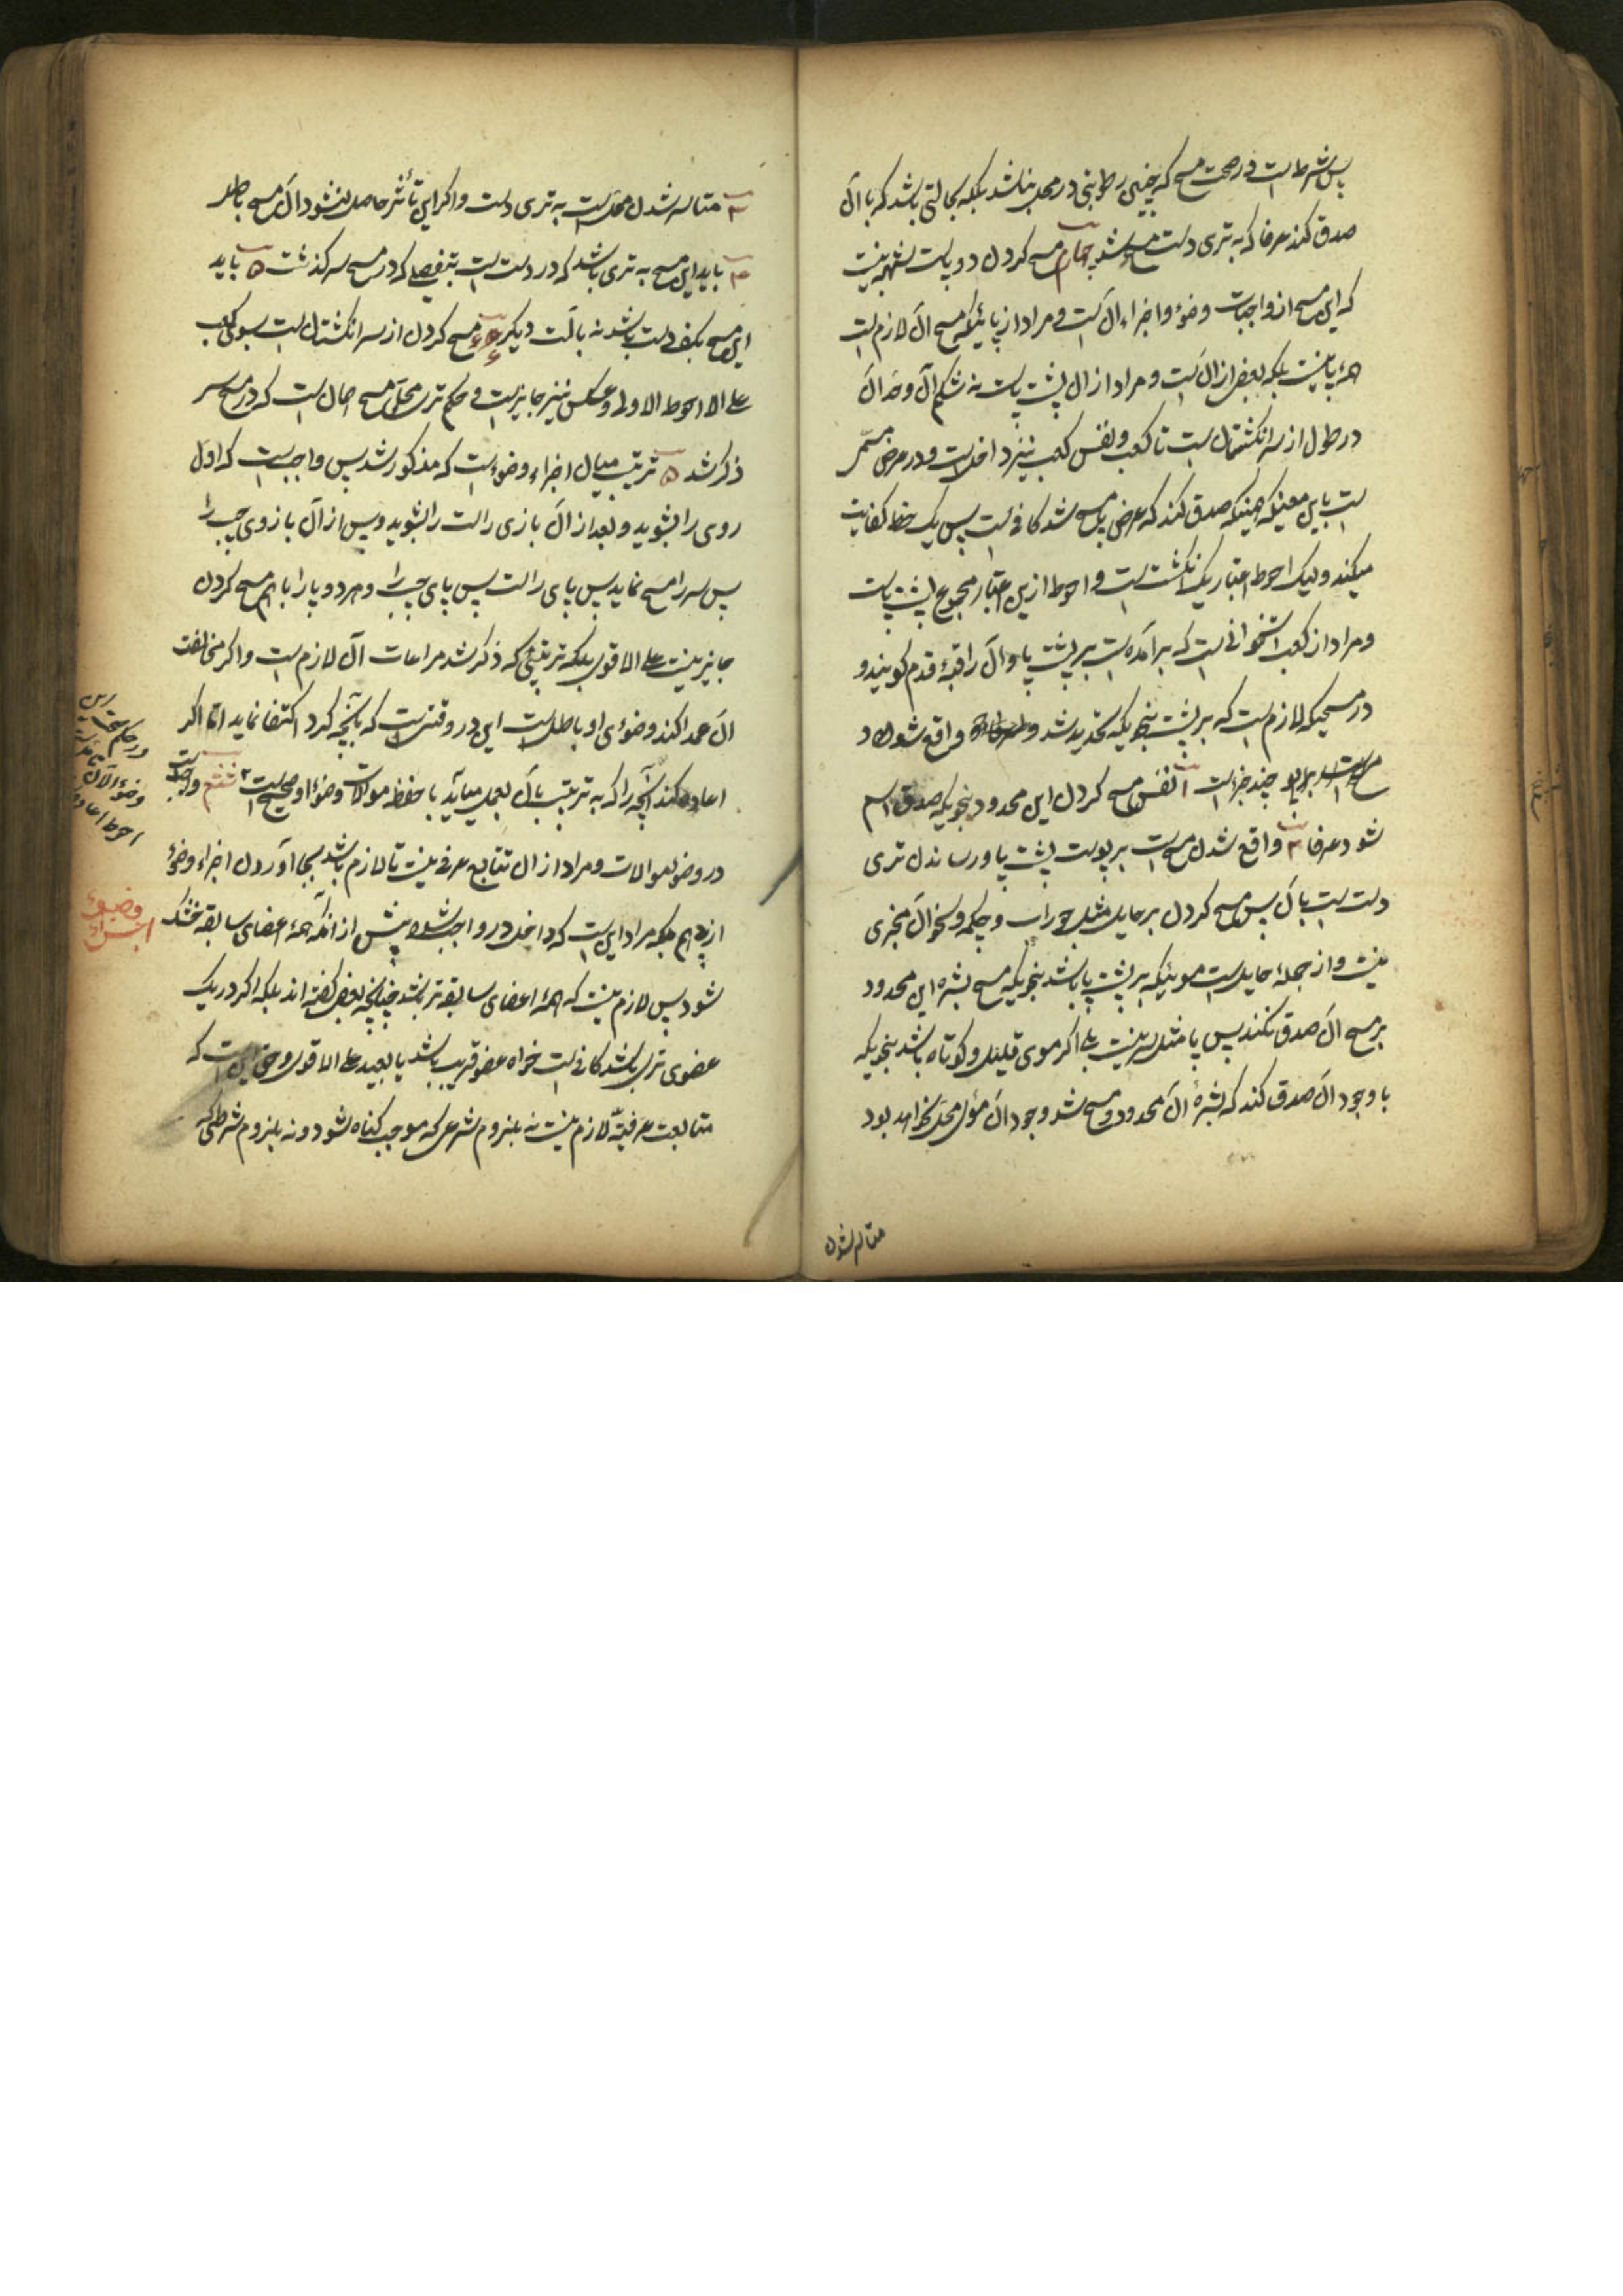 پس شرط است در صحت مسح که چنین رطوبتی در محل نباشد بلکه بحالتی باشد که با آن
صدق کند عرفا که به تری دست مسح شد چهارم مسح کردن دو پاست شبهه نیست
که این مسح از واجبات وضوء و اجزاء آن است و مراد از پائیکه مسح آن لازم است
همه پا نیست بلکه بعض از آن است و مراد از آن پشت پاست نه شکم آن و حد آن
در طول از سر انگشتان است تا کعب و نفس کعب نیز داخل است و در عرض مسمّی
است باین معنی که همینکه صدق کند که عرض پا مسح شد کافی است پس یک خط کفایت
میکند ولیک احوط اعتبار یک انگشت است و احوط ازین اعتبار مجموع پشت پاست
و مراد از کعب استخوانی است که برآمده است بر پشت پا و آن را قبّهٔ قدم گویند و
در مسحیکه لازم است که بر پشت پا بنحویکه تحدید شد واقع شود
چند چیز است ۱ نفس مسح کردن این محدود بنحویکه صدق اسم
شود عرفا ۲ واقع شدن مسح است بر پوست پشت پا و رساندن تری
دست است بآن پس مسح کردن بر حایل مثل جوراب و چکمه و نحو آن مجزی
نیست و از جملهٔ حایل است موئیکه بر پشت پا باشد بنحویکه مسح بشرهٔ این محدود
بر مسح آن صدق نکند پس پا مثل سر نیست بلی اگر موی قلیل و کوتاه باشد بنحویکه
با وجود آن صدق کند که بشرهٔ آن محدود مسح شد وجود آن مو مخلّ نخواهد بود
متاثر شدن
۳ متاثر شدن محل است به تری دست و اگر این تأثر حاصل نشود آن مسح باطل
۴ باید این مسح به تری باشد که در دست است بتفصیلی که در مسح سر گذشت ۵ باید
این مسح بکف دست باشد نه بآلت دیگر ۶ مسح کردن از سر انگشتان است بسوی کعب
علی الاحوط الاولی و عکس نیز جایز است و حکم تری محل مسح همان است که در مسح سر
ذکر شد ۵ ترتیب میان اجزاء وضوء است که مذکور شد پس واجب است که اول
روی را بشوید و بعد از آن بازی راست را بشوید و پس از آن بازوی چپ را
پس سر را مسح نماید پس پای راست پس پای چپ را و هر دو پا را با هم مسح کردن
جایز نیست علی الاقوی بلکه ترتیبی که ذکر شد مراعات آن لازم است و اگر مخالفت
آن عمدا کند وضوی او باطل است این در وقتی است که بآنچه کرد اکتفا نماید اما اگر
اعاده کند آنچه را که به ترتیب بآن بعمل میآید با حفظ موالات وضوء او صحیح است ششم واجب است
در وضو موالات و مراد از آن تتابع عرفی نیست تا لازم باشد بجا آوردن اجزاء وضوء
از پی هم بلکه مراد این است که داخل در واجب شود پیش از آنکه همهٔ اعضای سابقه خشک
شود پس لازم نیست که همهٔ اعضای سابقه تر باشد چنانچه بعض گفته اند بلکه اگر در یک
عضوی تری باشد کافی است خواه عضو قریب باشد یا بعید علی الاقوی و حق این است که
متابعت عرفیّه لازم نیست نه بلزوم شرعی که موجب گناه شود و نه بلزوم شرطی که
وضوء
اجزاء